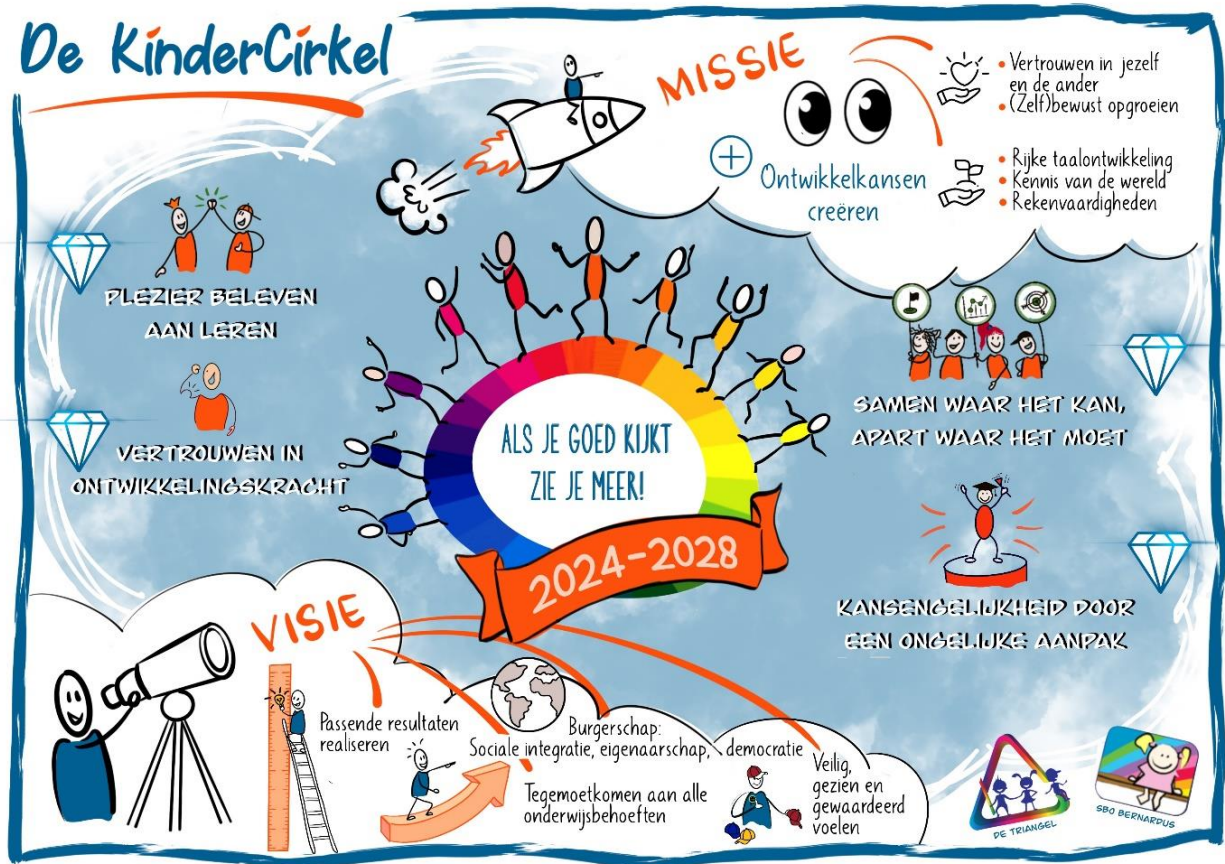 De KinderCirkel
MISSIE
Ontwikkelkansen
creëren
• Vertrouwen in jezelf
en de ander
• (Zelf)bewust opgroeien
• Rijke taalontwikkeling
• Kennis van de wereld
• Rekenvaardigheden
PLEZIER BELEVEN
AAN LEREN
VERTROUWEN IN
ONTWIKKELINGSKRACHT
ALS JE GOED KIJKT
ZIE JE MEER!
2024-2028
SAMEN WAAR HET KAN,
APART WAAR HET MOET
KANSENGELIJKHEID DOOR
EEN ONGELIJKE AANPAK
VISIE
Passende resultaten
realiseren
Burgerschap:
Sociale integratie, eigenaarschap, democratie
Tegemoetkomen aan alle
onderwijsbehoeften
Veilig,
gezien en
gewaardeerd
voelen
DE TRIANGEL
SBO BERNARDUS